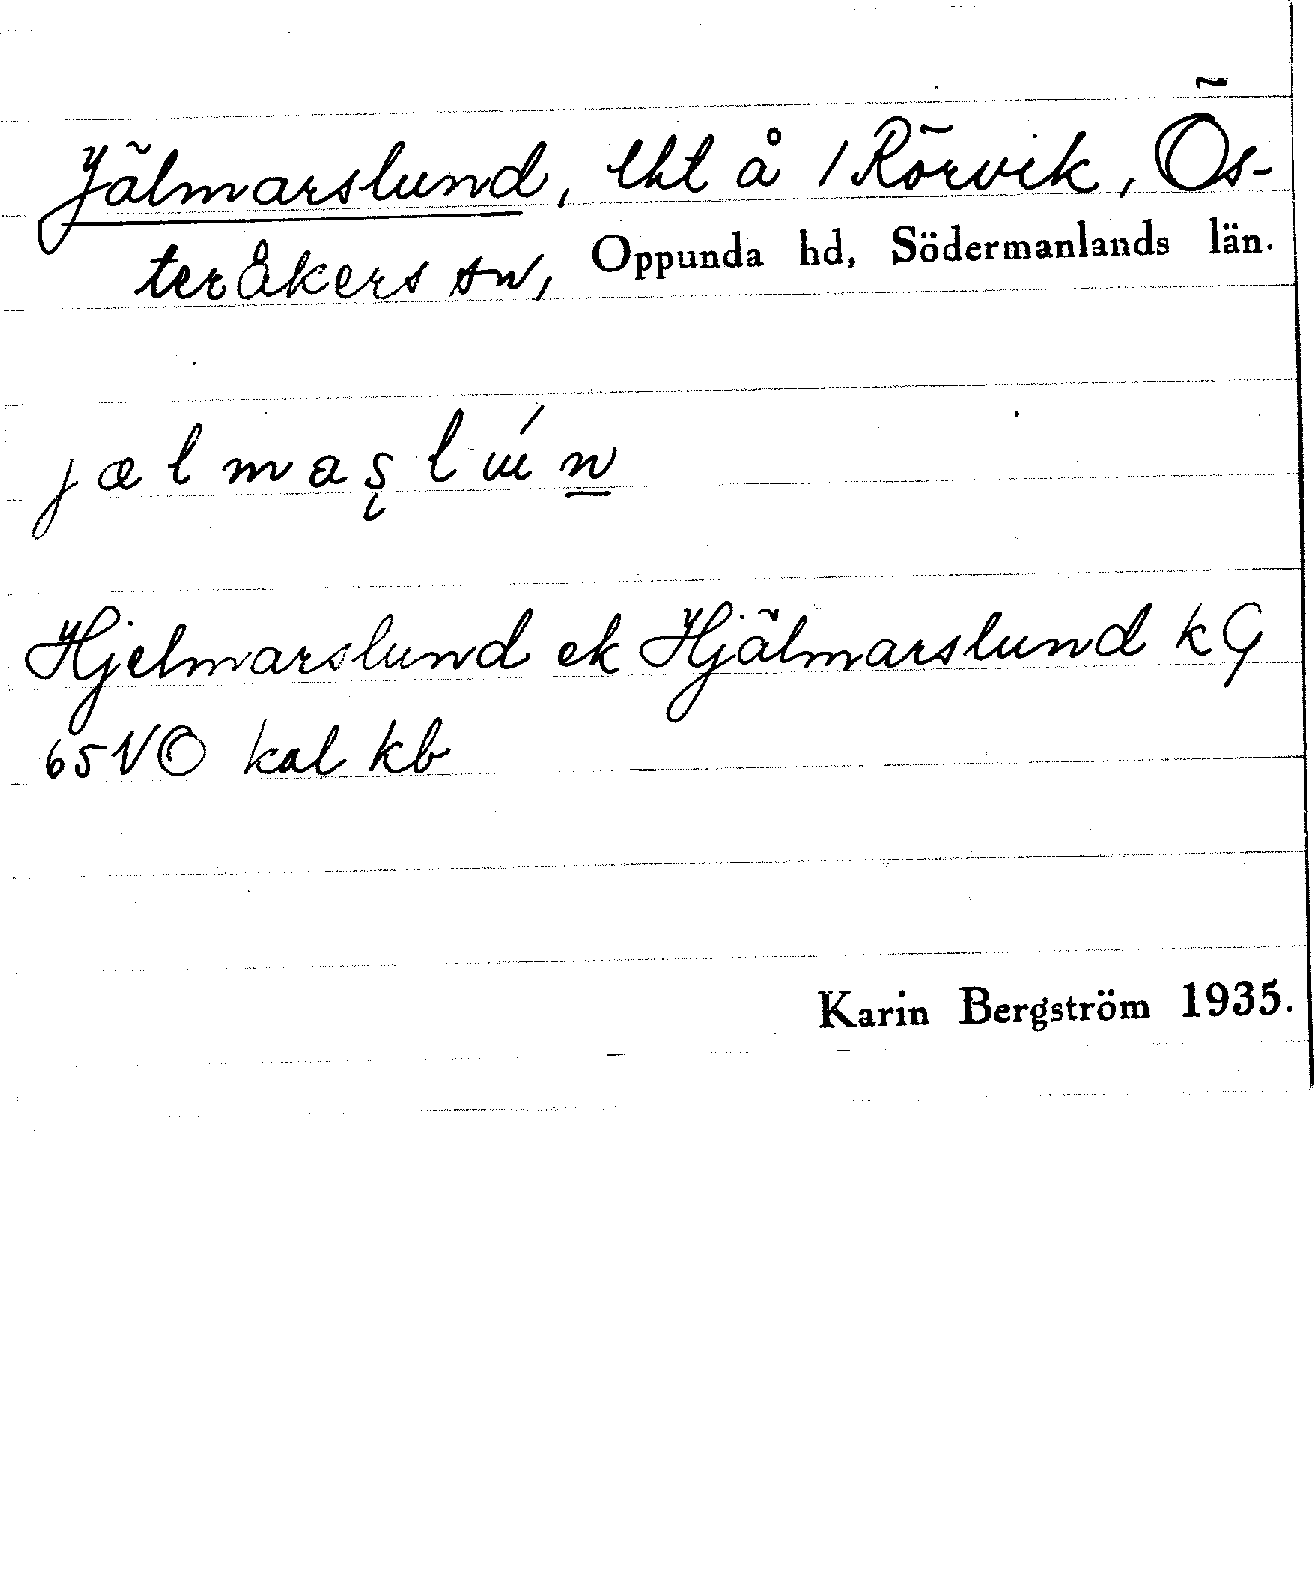 Jälmarslund, lht å 1 Rörvik, Ös-
teråkers sn, Oppunda hd, Södermanlands län.
jælmaʂlún
Hjelmarslund ek Hjälmarslund kG
65 NO kal kb
Karin Bergström 1935.